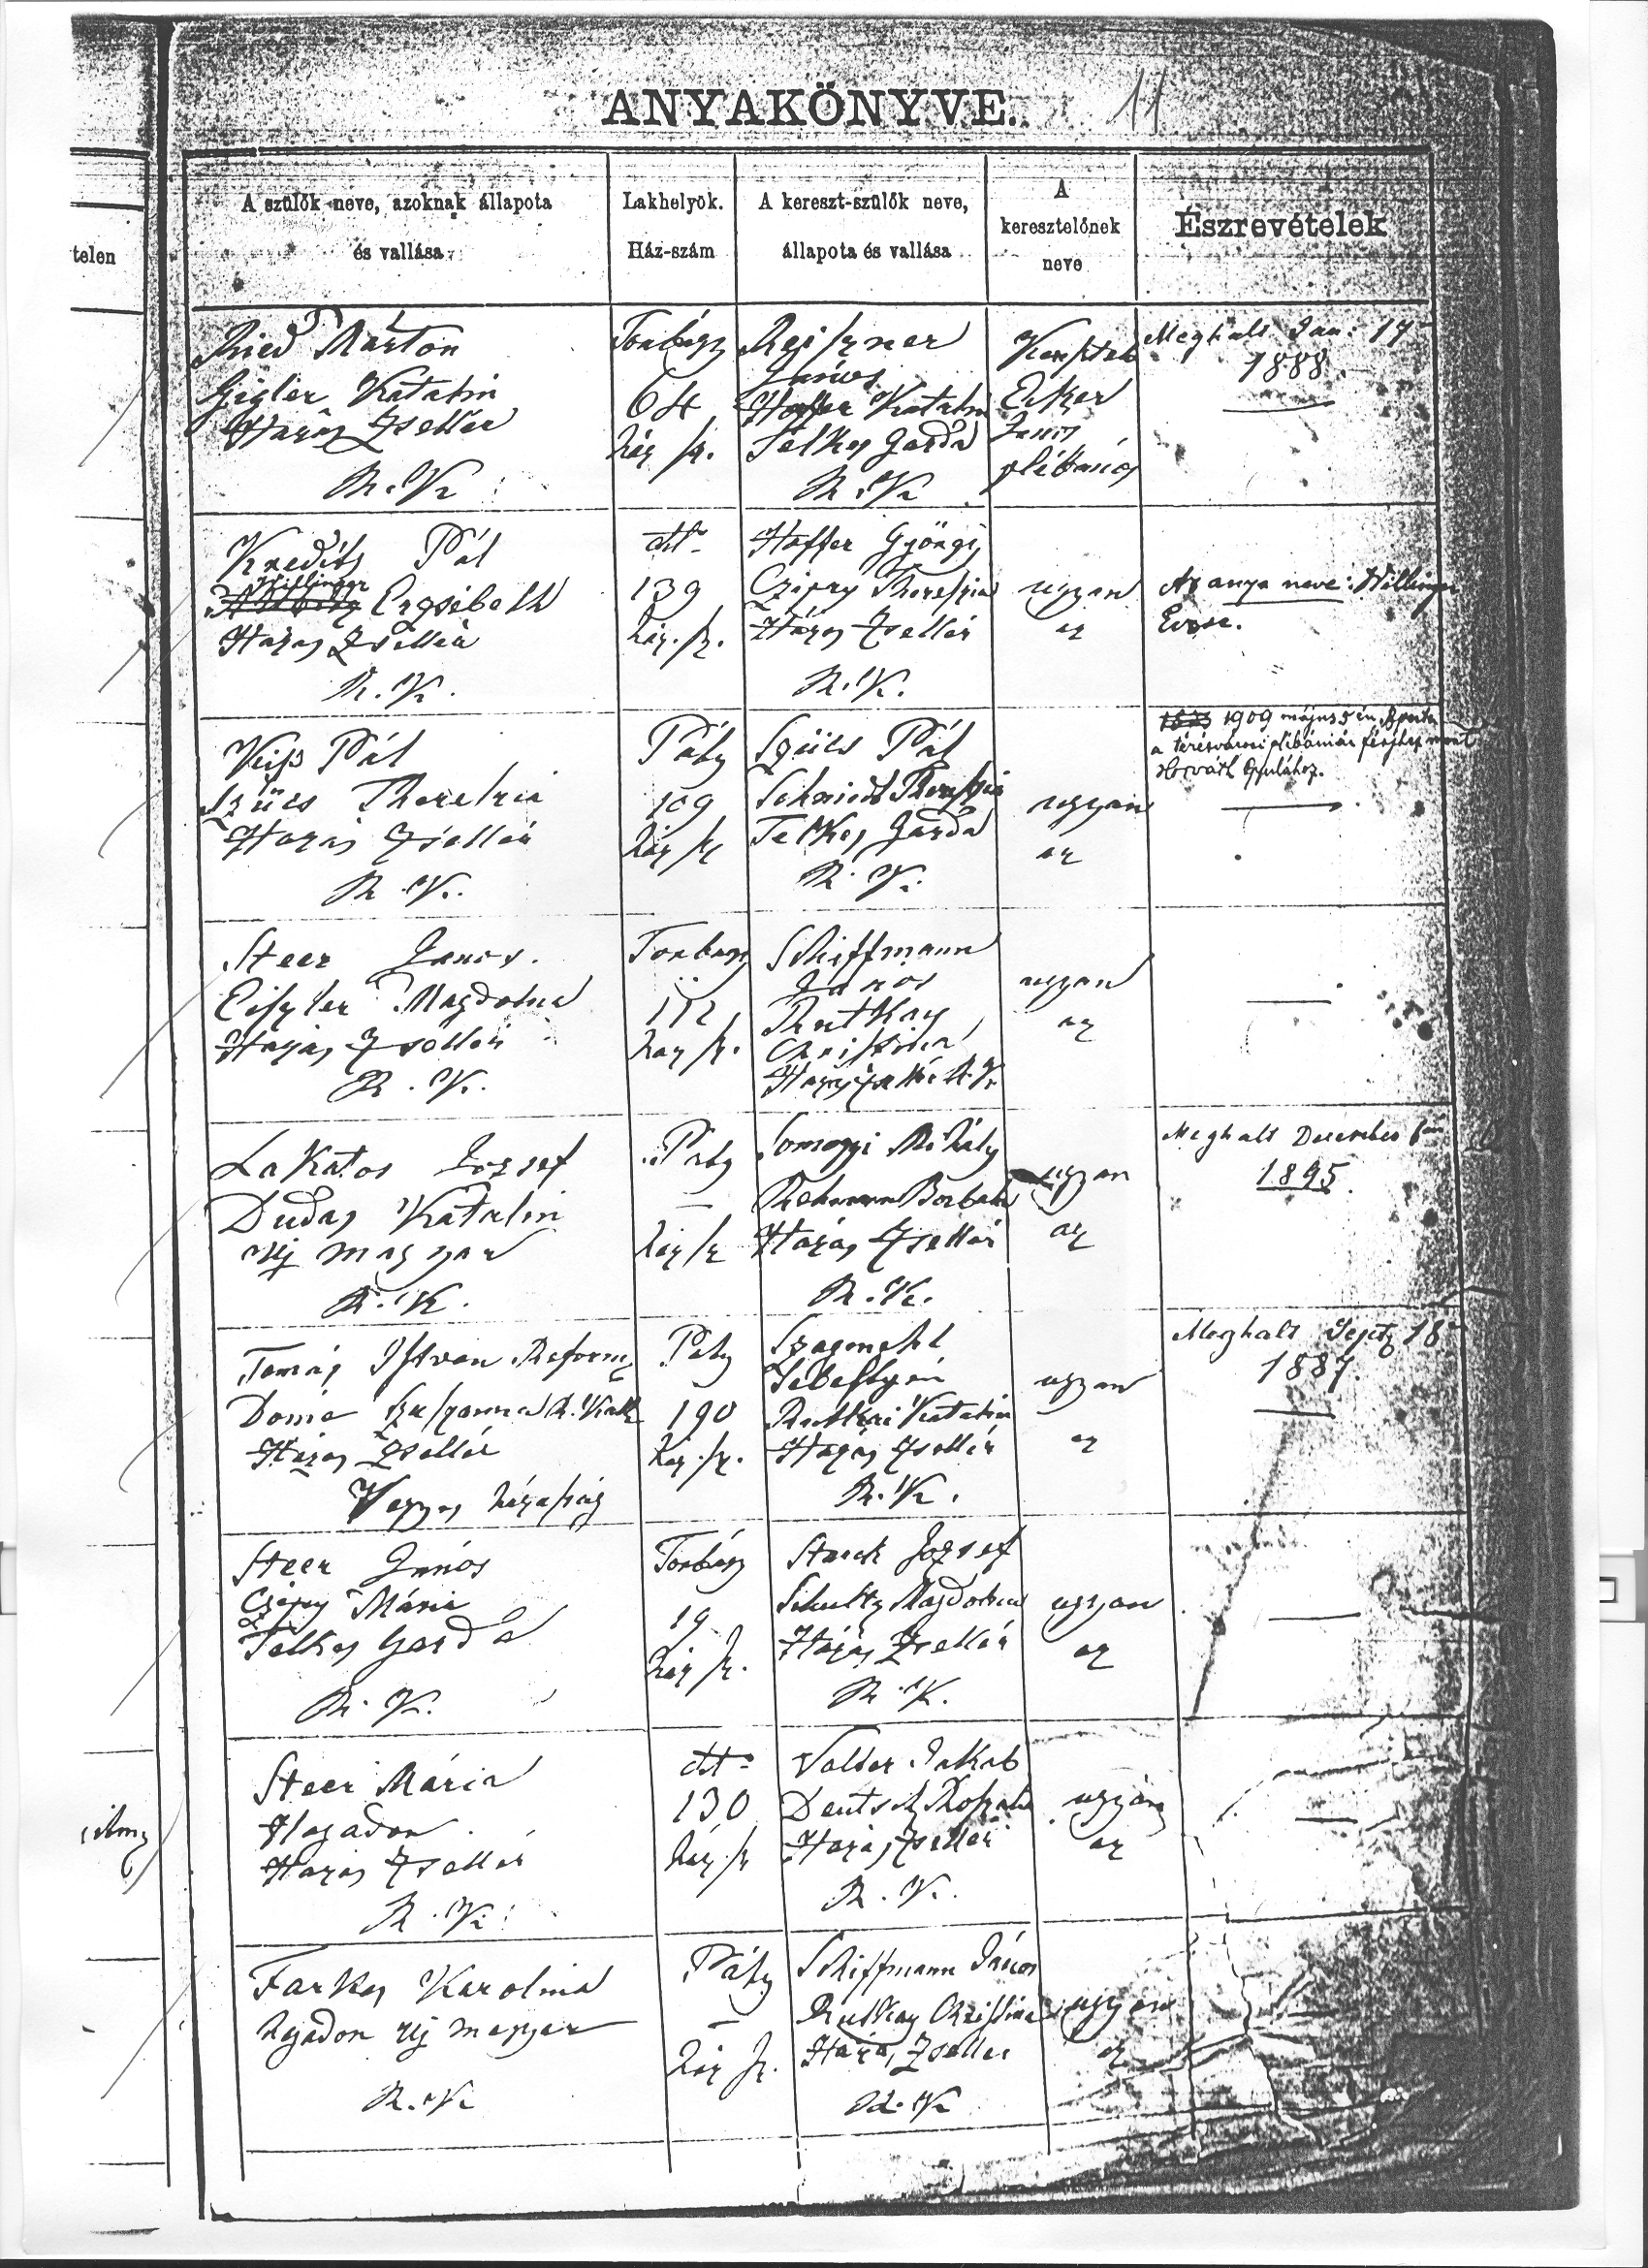 ANYAKÖNYVE. 11
telen
A szülők neve, azoknak állapota
és vallása
Lakhelyök.
Ház-szám
A kereszt-szülők neve,
állapota és vallása
A
keresztelőnek
neve
Észrevételek
Ried Márton
Gigler Katalin
Házas Zsellér
R. K.
Torbágy
64
ház sz.
Reiszner
János
Hoffer Katalin
Telkes Gazda
R. K.
Ecker
János
plébános
Meghalt Jan. 17
1888.
Kredits Pál
Hillinger
Erzsébeth
Házas Zsellér
R. K.
dtt-
139
ház. sz.
Hoffer György
Czipry Therezia
Házas Zsellér
R. K.
ugyan
az
Az anya neve: Hillinger
Erzse.
Kiss Pál
Szücs Therezia
Házas Zsellér
R. K.
Páty
109
ház sz
Szücs Pál
Schmidt Therezia
Telkes Gazda
R. K.
ugyan
az
1909 május 5 én
a plébánián férjhez ment
Horváth Gyulához.
Steer János.
Eiszler Magdolna
Házas Zsellér
R. K.
Torbágy
112
ház sz.
Schiffmann
János
Rutkay
Christina
Házas Zsellér R. K.
ugyan
az
Lakatos József
Dudas Katalin
uj magyar
R. K.
Páty
—
ház sz
Somogyi Mihály
Borbala
Házas Zsellér
R. K.
ugyan
az
Meghalt December
1895.
Tamás Istvan Reform
Doma Zsuzsanna R. Kath
Házas Zsellér
Vegyes házasság
Páty
190
ház. sz.
Szagmehl
Sebestyén
Rutkai Katalin
Házas Zsellér
R. K.
ugyan
az
Meghalt Sept 18
1887.
Steer János
Czipry Mária
Telkes Gazda
R. K.
Torbágy
19
ház sz.
Starck József
Schultz Magdolna
Házas Zsellér
R. K.
ugyan
az
Steer Mária
Hajadon
Házas Zsellér
R. K.
dtt-
130
ház. sz
Valter Jakab
Deutsch Rozalia
Házas Zsellér
R. K.
ugyan
az
Farkas Karolina
hajadon uj magyar
R. K.
Páty
—
ház sz.
Schiffmann János
Rutkay Christina
Házas Zseller
R. K.
ugyan
az